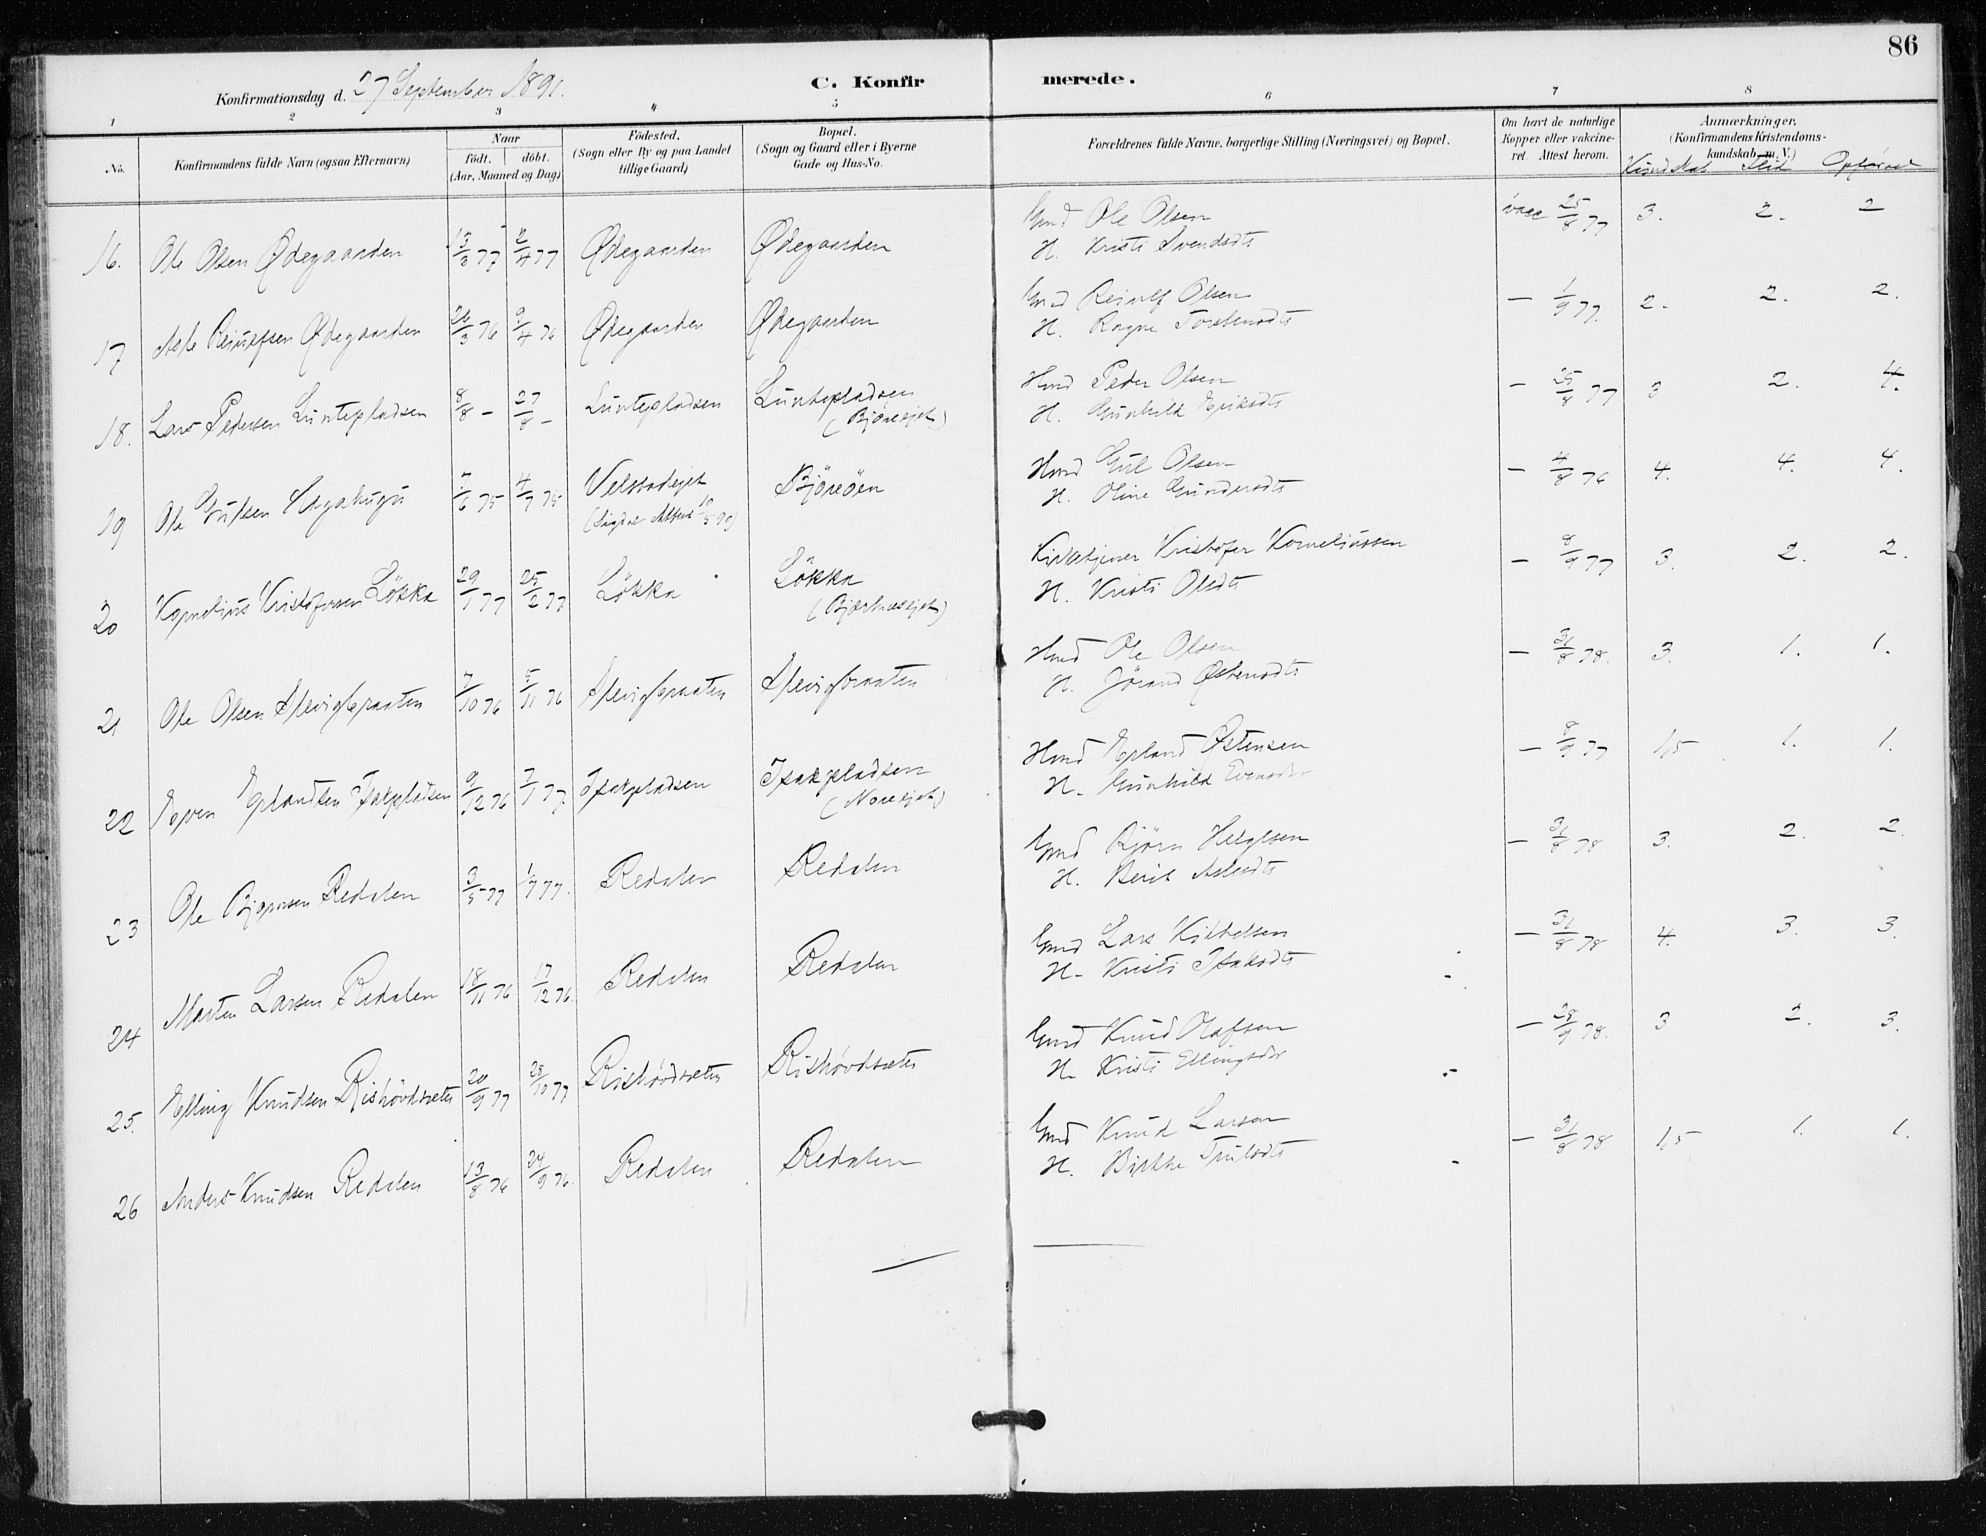 86
Konfirmationsdag d. 27 September 1891.
C. Konfirmerede.
1 2 3 4 5 6 7 8
No.
Konfirmandens fulde Navn (ogsaa Efternavn)
Naar
födt. döbt.
(Aar, Maaned og Dag)
Födested.
(Sogn eller By og paa Landet
tillige Gaard)
Bopæl.
(Sogn og Gaard eller i Byerne
Gade og Hus-No.
Forældrenes fulde Navne, borgerlige Stilling (Næringsvei) og Bopæl.
Om havt de naturlige
Kopper eller vakcine-
ret. Attest herom.
Anmærkninger,
(Konfirmandens Kristendoms-
kundskab m. V.)
Kundskab Flid Opførsel
16. Ole Olsen Ødegaarden 13/3 77 2/4 77 Ødegaarden Ødegaarden Gmd Ole Olsen vacc 25/8 77 3. 2. 2
H. Kristi Svendsdt
17 Asle Reiulfsen Ødegaarden 26/3 76 9/4 76 Ødegaarden Ødegaarden Gmd Reiulf Olsen — 1/9 77. 2. 2. 2.
H. Ragne Torstensdt
18. Lars Pedersen Luntepladsen 8/8 – 27/8 – Luntepladsen Luntepladsen Hmd Peder Olsen — 25/8 77 3 2. 4.
H. Gunhild Eriksdt
19 Ole Gulsen Hagahugu 7/6 75 4/7 75 Björeöen Hmd Gul Olsen — 4/8 76 4. 4. 4.
(Sigdal Attest 10/5 90)
H. Oline Gundersdt
20 Kornelius Kristofersen Lökka 29/1 77 25/2 77 Lökka Lökka Kirketjener Kristofer Korneliussen — 8/9 77 3. 2. 2.
H. Kristi Olsdt
21 Ole Olsen 7/10 76 5/11 76 Hmd Ole Olsen — 31/8 78. 3. 1. 1.
H. Jörand Østensdt
22 Even Erlandsen Isakpladsen 9/12 76 7/1 77. Isakpladsen Isakpladsen Hmd Erland Østensen — 8/9 77 1,5 1. 1.
(Noresjet)
H. Gunhild Evensdtr
23 Ole Bjørnsen Redalen 3/5 77 1/7 77. Redalen Redalen Gmd Björn Helgesen — 31/8 78 3. 2. 2.
H. Berit Aslesdt
24 Morten Larsen Redalen 18/11 76 17/12 76. Redalen Redalen Gmd Lars Kittelsen — 31/8 78 4. 3. 3.
H. Kristi Isaksdt
25. Elling Knudsen Rishövdsæter 20/9 77 28/10 77 Rishövdsæter Rishövdsæter Gmd Knud Olafsen — 28/9 78. 3 2. 3.
H. Kristi Ellingsdtr
26 Anders Knudsen Redalen 13/8 76 24/9 76. Redalen Redalen Gmd Knud Larsen — 31/8 78 1,5 1. 1.
H. Birthe Trulsdt